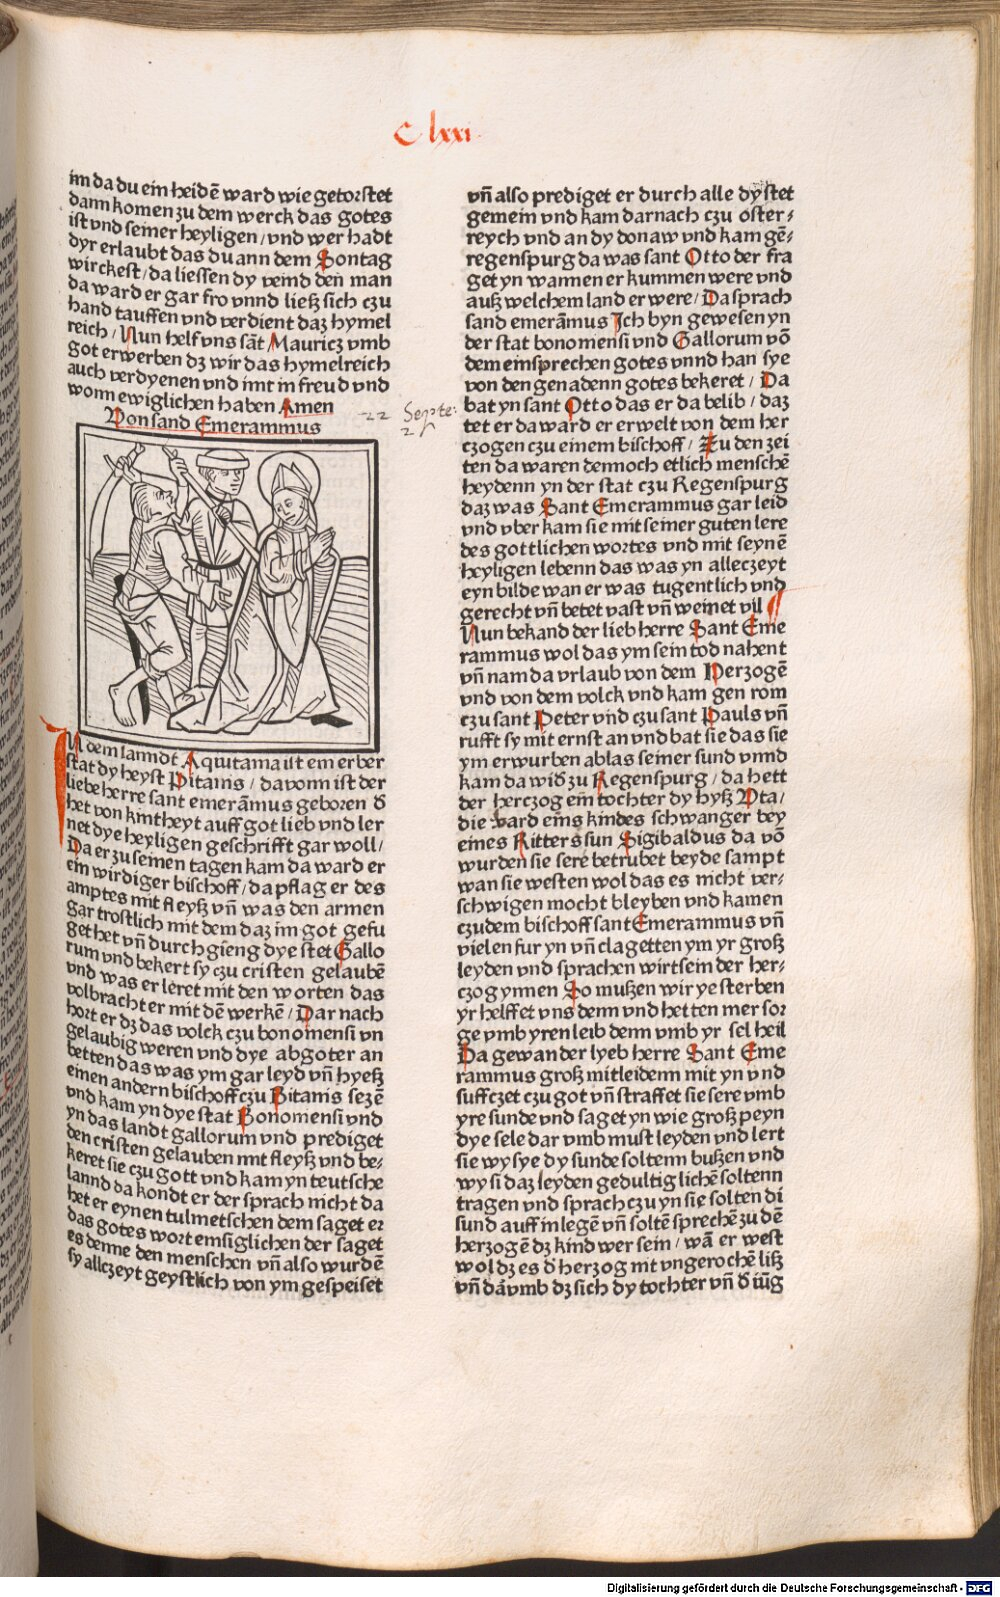 C lxxi
im da du ein heidē ward wie getorstet
dann komen zu dem werck das gotes
ist vnd seiner heyligen / vnd wer hadt
dyr erlaubt das du ann dem Sontag
wirckest / da liessen dy veind den man
da ward er gar fro vnnd ließ sich czu
hand tauffen vnd verdient daz hymel
reich / Nun helf vns sāt Mauricz vmb
got erwerben dz wir das hymelreich
auch verdyenen vnd imt in freud vnd
wonn ewiglichen haben Amen
22 Septe:
Von sand Emerammus
IN dem lanndt Aquitania ist ein erber
stat dy heyst Pitanis / davonn ist der
liebe herre sant emerāmus geboren d̄
het von kintheyt auff got lieb vnd ler
net dye heyligen geschrifft gar woll /
Da er zu seinen tagen kam da ward er
ein wirdiger bischoff / da pflag er des
amptes mit fleyß vn̄ was den armen
gar trostlich mit dem daz im got gefu
get het vn̄ durch gieng dye stet Gallo
rum vnd bekert sy czu cristen gelaubē
vnd was er leret mit den worten das
volbracht er mit dē werkē / Dar nach
hort er dz das volck czu bonomensi vn
gelaubig weren vnd dye abgoter an
betten das was ym gar leyd vn̄ hyeß
einen andern bischoff czu Pitanis sezē
vnd kam yn dye stat Bonomensi vnd
yn das landt gallorum vnd prediget
den cristen gelauben mit fleyß vnd be⸗
keret sie czu gott vnd kam yn teutsche
lannd da kondt er der sprach nicht da
het er eynen tulmetschen dem saget er
das gotes wort emsiglichen der saget
es denne den menschen vn̄ also wurdē
sy allczeyt geystlich von ym gespeiset
vn̄ also prediget er durch alle dy stet
gemein vnd kam darnach czu öster⸗
reych vnd an dy donaw vnd kam gē⸗
regenspurg da was sant Otto der fra
get yn wannen er kummen were vnd
auß welchem land er were / Da sprach
sand emerāmus Ich byn gewesen yn
der stat bonomensi vnd Gallorum vō
dem einsprechen gotes vnnd han sye
von den genadenn gotes bekeret / Da
bat yn sant Otto das er da belib / daz
tet er da ward er erwelt von dem her
czogen czu einem bischoff / Zu den zei
ten da waren dennoch etlich menschē
heydenn yn der stat czu Regenspurg
daz was Sant Emerammus gar leid
vnd vber kam sie mit seiner guten lere
des gottlichen wortes vnd mit seynē
heyligen lebenn das was yn alleczeyt
eyn bilde wan er was tugentlich vnd
gerecht vn̄ betet vast vn̄ weinet vil
Nun bekand der lieb herre Sant Eme
rammus wol das ym sein tod nahent
vn̄ nam da vrlaub von dem Herzogē
vnd von dem volck vnd kam gen rom
czu sant Peter vnd czu sant Pauls vn̄
rufft sy mit ernst an vnd bat sie das sie
ym erwurben ablas seiner sund vnnd
kam da wid̄ zu Regenspurg / da hett
der herczog ein tochter dy hyß Vta /
die ward eins kindes schwanger bey
eines Ritters sun Sigibaldus da vō
wurden sie sere betrubet beyde sampt
wan sie westen wol das es nicht ver⸗
schwigen mocht bleyben vnd kamen
czu dem bischoff sant Emerammus vn̄
vielen fur yn vn̄ clagetten ym yr groß
leyden vnd sprachen wirt sein der her⸗
czog ynnen So mußen wir ye sterben
yr helffet vns denn vnd hetten mer sor
ge vmb yren leib denn vmb yr sel heil
Da gewan der lyeb herre Sant Eme
rammus groß mitleidenn mit yn vnd
sufftzet czu got vn̄ straffet sie sere vmb
yre sunde vnd saget yn wie groß peyn
dye sele dar vmb must leyden vnd lert
sie wy sye dy sunde soltenn bußen vnd
wy si daz leyden gedultiglichē soltenn
tragen vnd sprach czu yn sie solten di
sund auff in legē vn̄ soltē sprechē zu dē
herzogē dz kind wer sein / wā er west
wol dz es d̄ herzog mt vngerochē liß
vn̄ dāvmb dz sich dy tochter vn̄ d̄ iūg
Digitalisierung gefördert durch die Deutsche Forschungsgemeinschaft - DFG